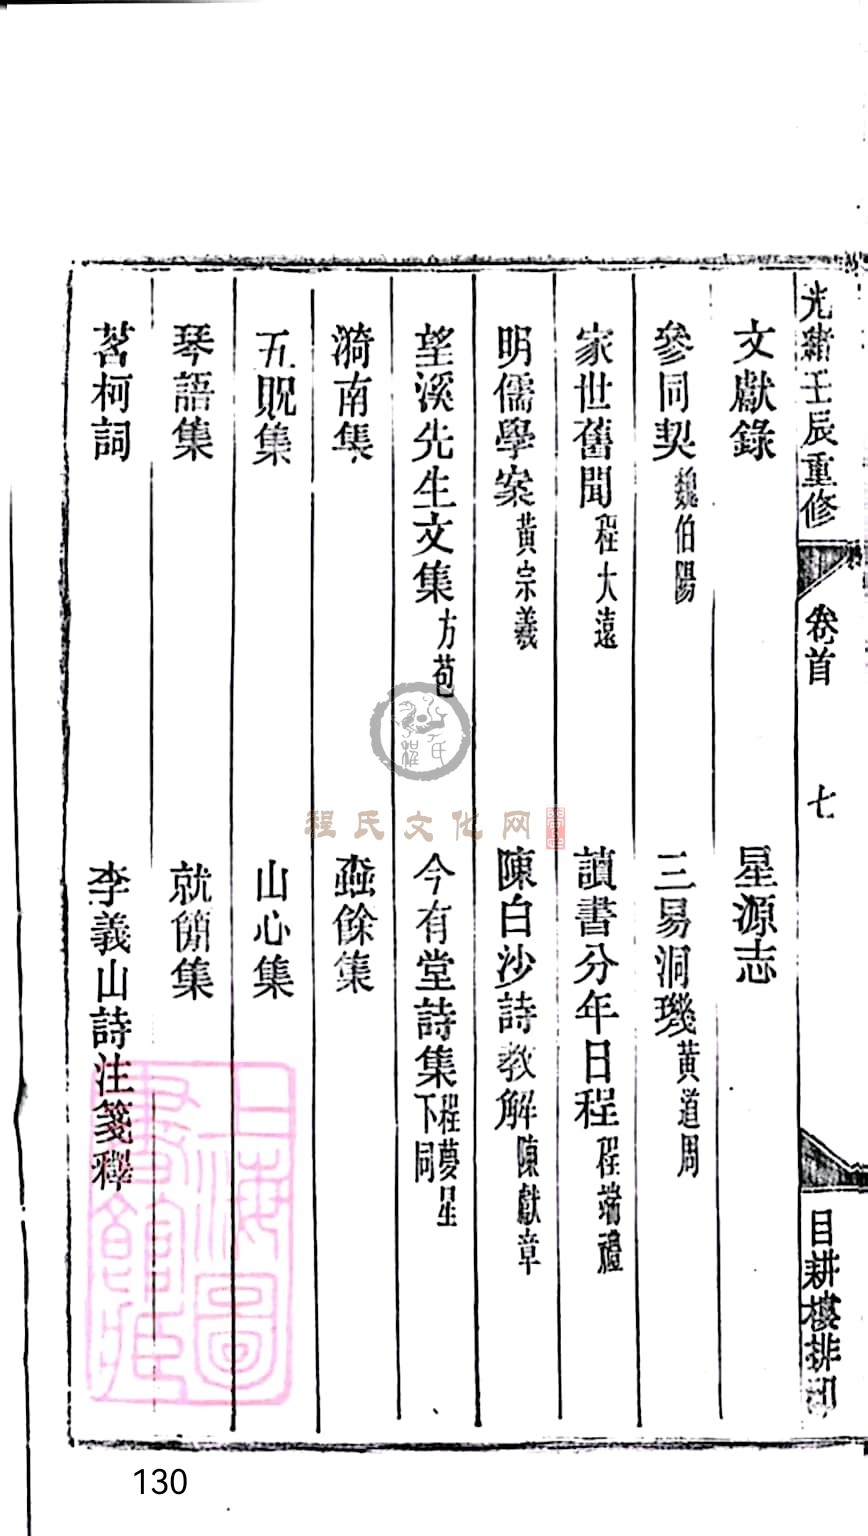 光緒壬辰重修 卷首 七 目耕樓排印
文獻錄 星源志
參同契 魏伯陽 三易洞璣 黃道周
家世舊聞 程大遠 讀書分年日程 程端禮
明儒學案 黃宗羲 陳白沙詩教解 陳獻章
望溪先生文集 方苞 今有堂詩集 程夢星下同
漪南集 蠡餘集
五貺集 山心集
琴語集 就簡集
茗柯詞 李義山詩注箋釋
程氏文化网
上海圖書館藏
130